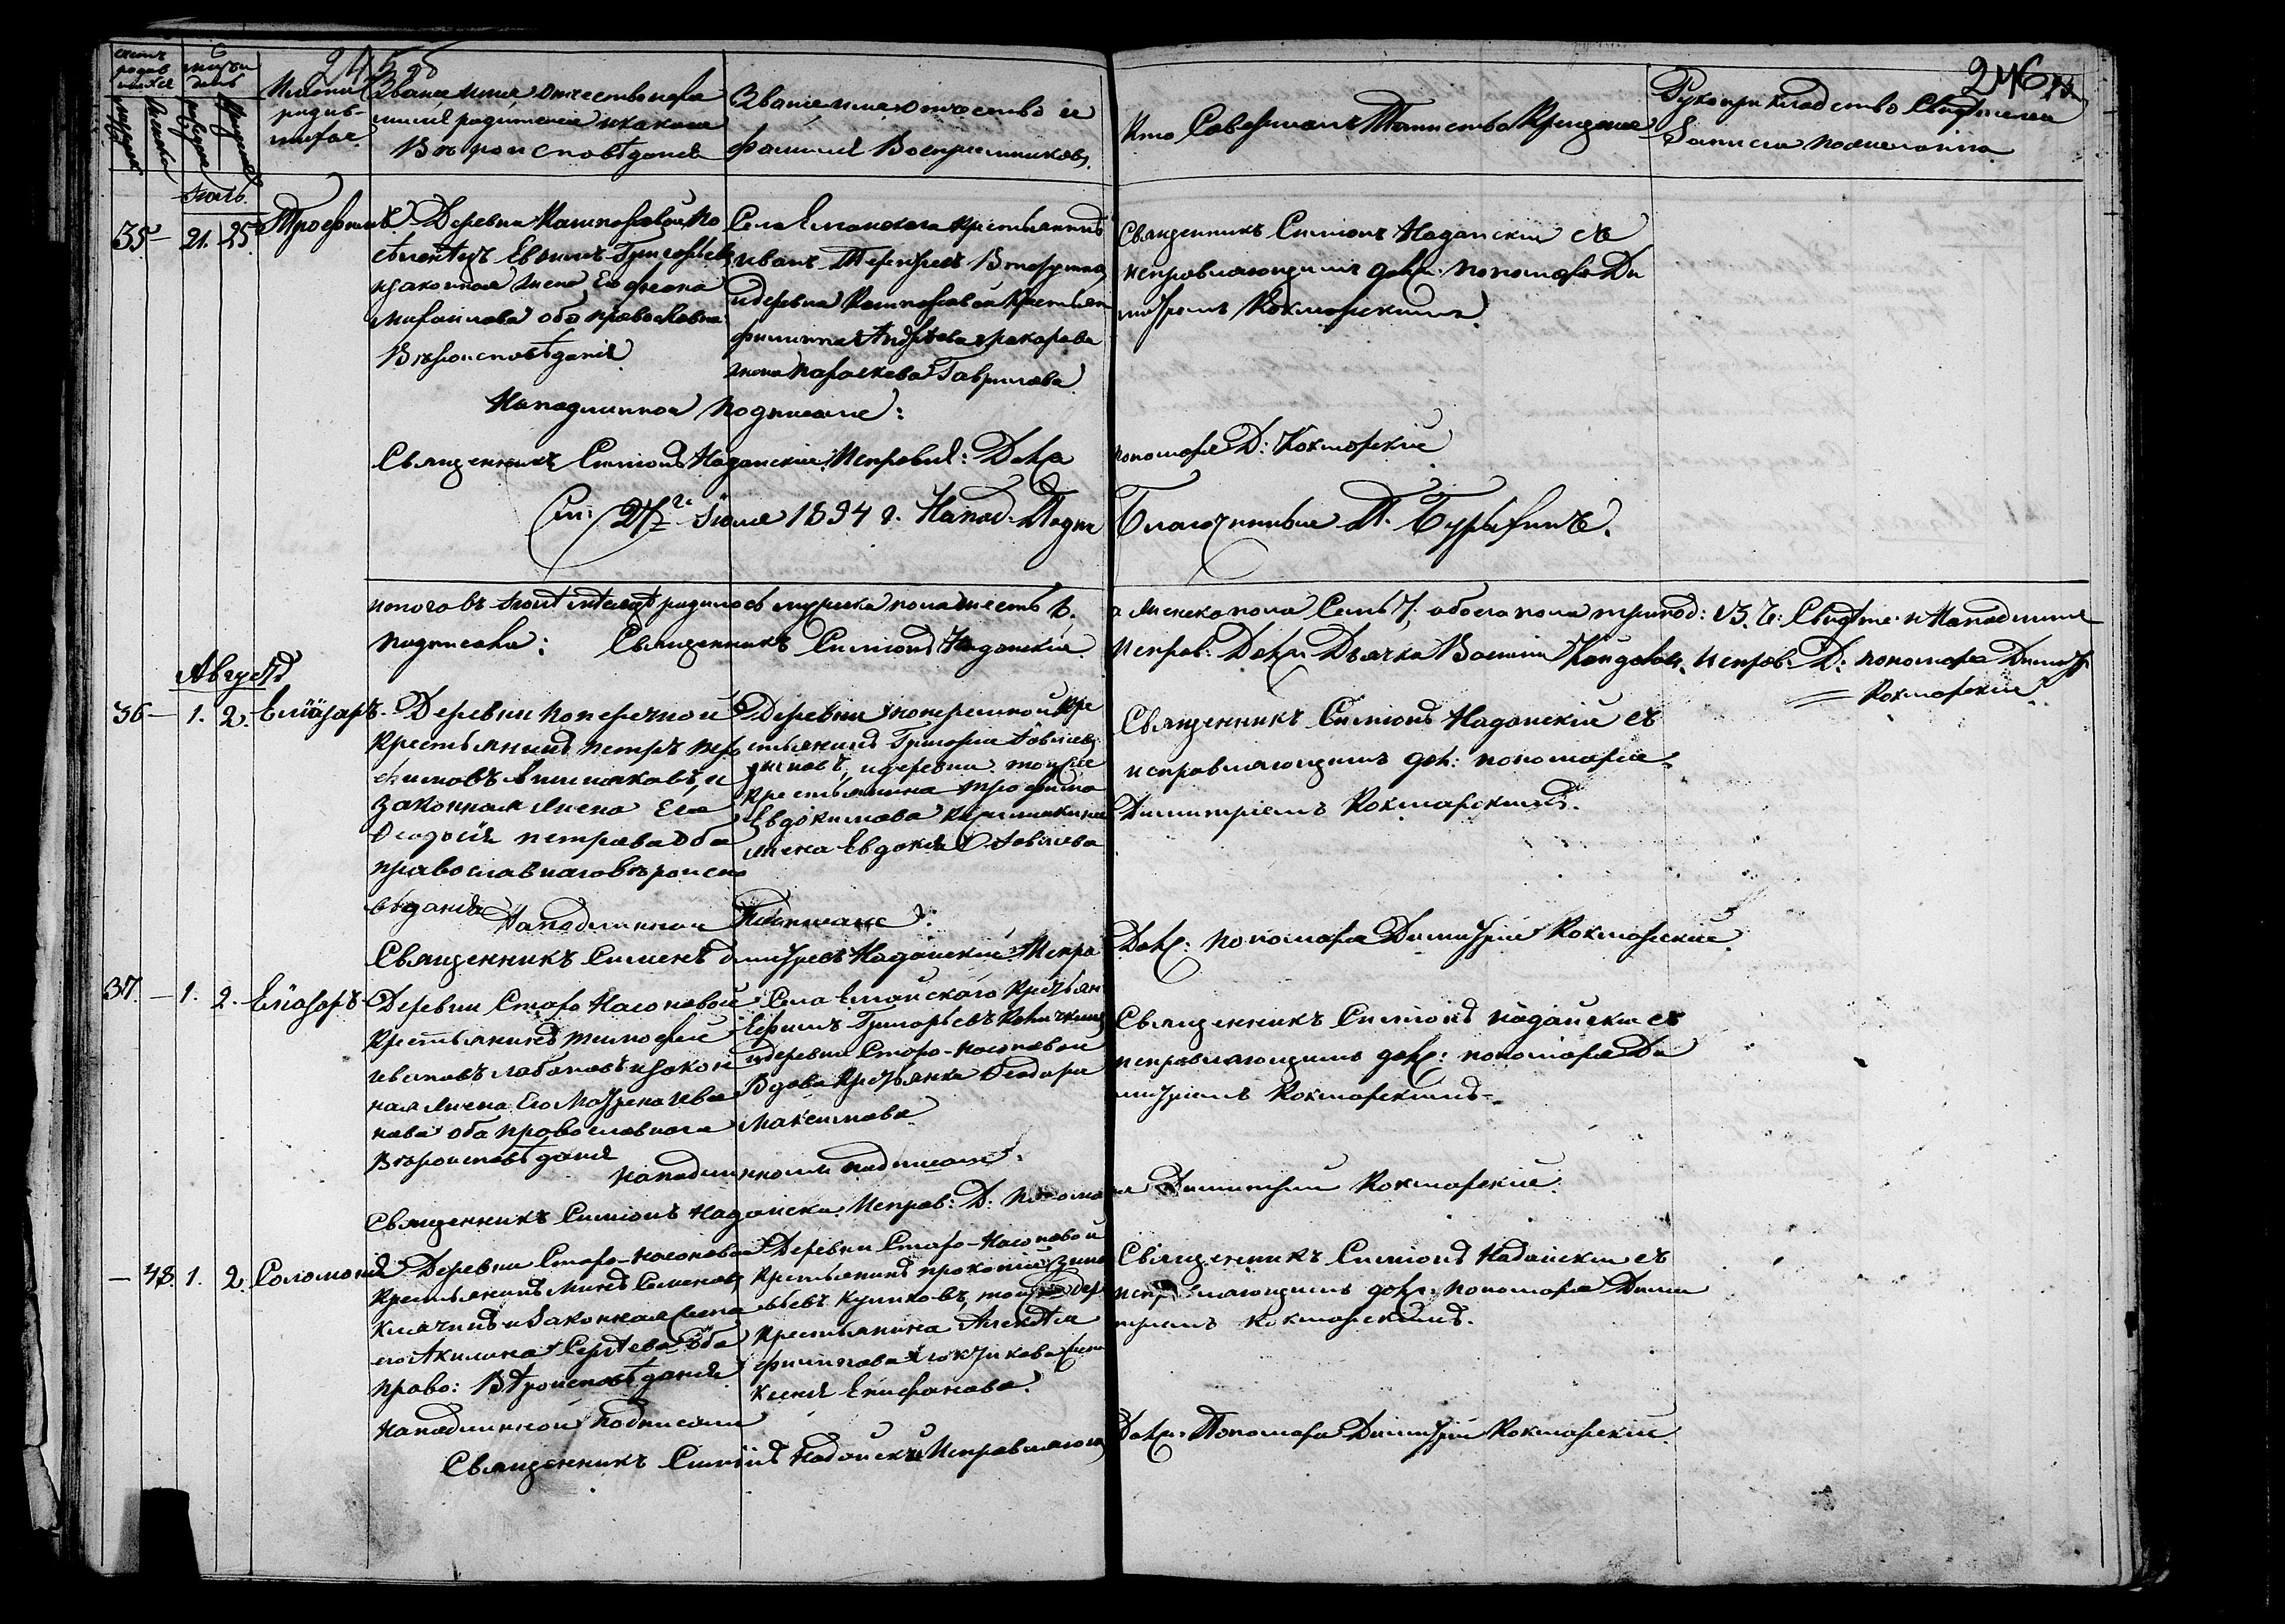 245 об
246
счетъ родив шихся
мужска
женска
мѣсяцъ и день
рожденія
крещенія
Имена родив-шихся.
Званіе имя отчество и фамилія родителей и какого Вѣроисповѣданія
Званіе имя отчество и фамилія Воспріемниковъ.
Кто Совершалъ Таинство Крещенія
Рукоприкладство Свидѣтелей Записи по желанію
Іюль.
35 — 21. 25. Трофимъ
Деревни
Евѳимъ Григорьевъ
и законная жена Его
Михайлова оба православна
Вѣроисповѣданія
Села Еланскаго крестьянинъ
Иванъ
и деревни крестьян
филиппа Андреева
жена Параскева Гаврилова
Священникъ Симіонъ Надайскій съ
исправляющимъ долж: пономаря Ди
митріемъ Кокшарскимъ.
Наподлинной подписали:
Священникъ Симіонъ Надайскій Исправл: Долж
пономаря Д: Кокшарскій
27го Іюля 1894 г. Напод. Подпи
Благочинный П. Бурыхинъ.
итого въ Іюлѣ мѣсяцѣ родилось мужска пола шесть 6.
а женска пола Семь 7, обоего пола тринад: 13. Ч: Свидѣте и Наподлинн
подписали: Священникъ Симіонъ Надайскій.
Исправ: Долж: Дьячка Василій Исправ: Д: пономаря Димитр
Кокшарскій.
Августъ
36 — 1. 2. Еліазаръ.
Деревни Поперечной
Крестьянинъ Петръ
и
законная жена Его
Ѳеодосія Петрова Оба
православнаго вѣроиспо
вѣданія
Деревни Поперечной Кре
стьянинъ Григорій
и деревни тойже
Крестьянина Трофима
Евдокимова
жена Евдокія
Священникъ Симіонъ Надайскій съ
исправляющимъ дол: пономаря
Димитріемъ Кокшарскимъ.
Наподлинной Подписали:
Священникъ Симіонъ Надайскій Испра
Долж: пономаря Димитрій Кокшарскій.
37. — 1. 2. Еліазаръ
Деревни Старо-Насоновой
Крестьянинъ Тимофей
Ивановъ Лабановъ и закон
ная жена Его Матрена Ива
нова оба православнаго
Вѣроисповѣданія
Села Еланскаго Крестьян
Ефимъ Григорьевъ
и деревни Старо-Насоновой
Вдова Крестьянка Ѳеодора
Максимова
Священникъ Симіонъ Надайскій съ
исправляющимъ долж: пономаря Ди
митріемъ Кокшарскимъ.
Наподлинной подписали:
Священникъ Симіонъ Надайскій Исправ: Д: Понома
ря Димитрій Кокшарскій.
— 48. 1. 2. Соломонія
Деревни Старо-Насоновой
Крестьянинъ
и Законная жена
его Акилина Сергѣева Оба
право: Вѣроисповѣданія
Деревни Старо-Насоновой
Крестьянинъ Прокопій Зино
вьевъ Куликовъ, тойже Дер
Крестьянина Алексѣя
филиппова жена
Ксенія Епифанова.
Священникъ Симіонъ Надайскій съ
исправляющимъ долж: пономаря Дими
тріемъ Кокшарскимъ.
Наподлинной Подписали
Священникъ Симіонъ Надайскій Исправляющ
Долж: Пономаря Димитрій Кокшарскій.